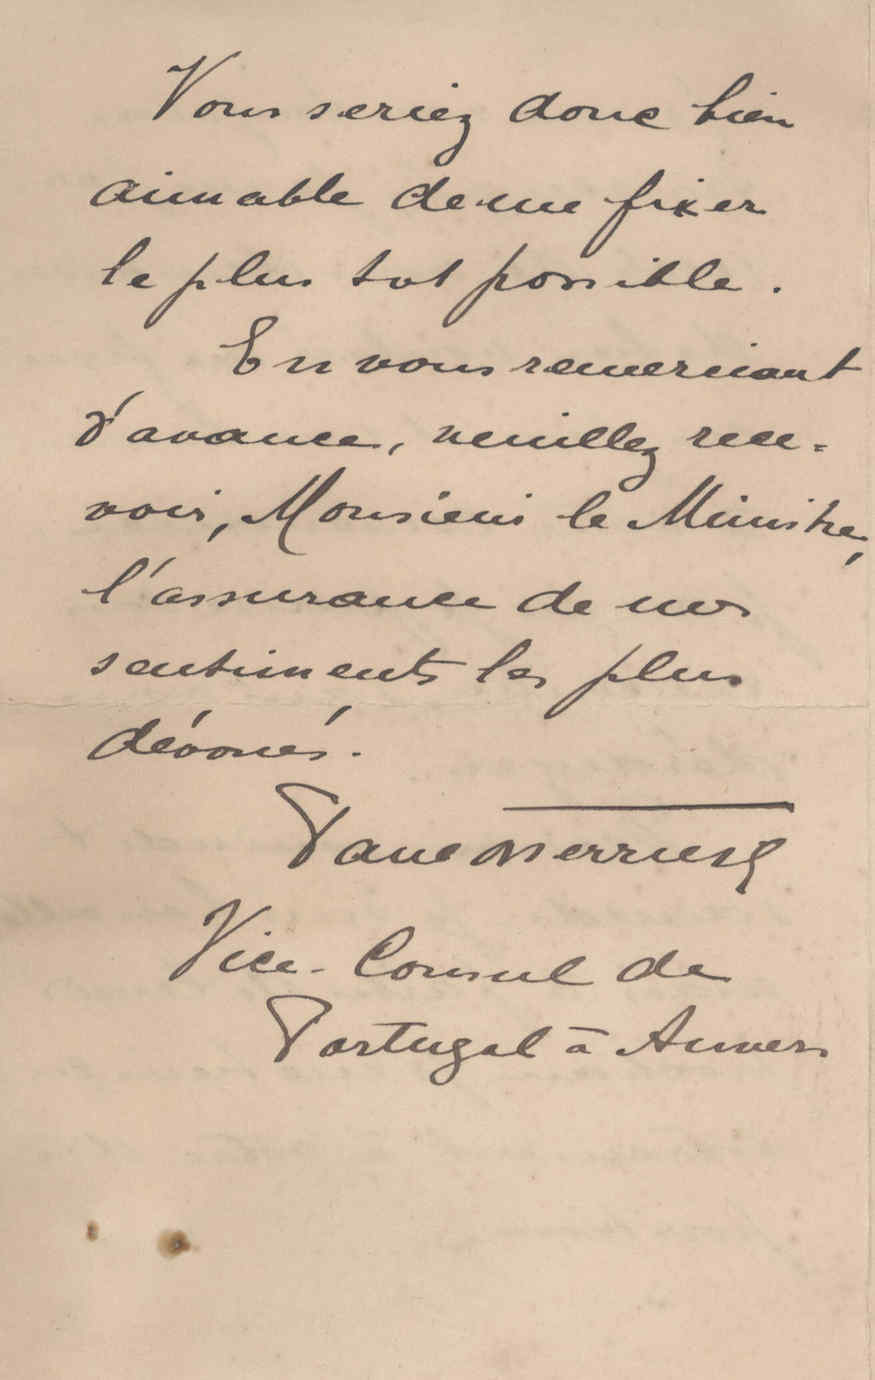 Vous seriez donc bien
aimable de me fixer
le plus tot possible.
En vous remerciant
d'avance, veuillez rece-
voir, Monsieur le Ministre,
l'assurance de nos
sentiments les plus
dévoués.
Vice-Consul de
Portugal à Anvers